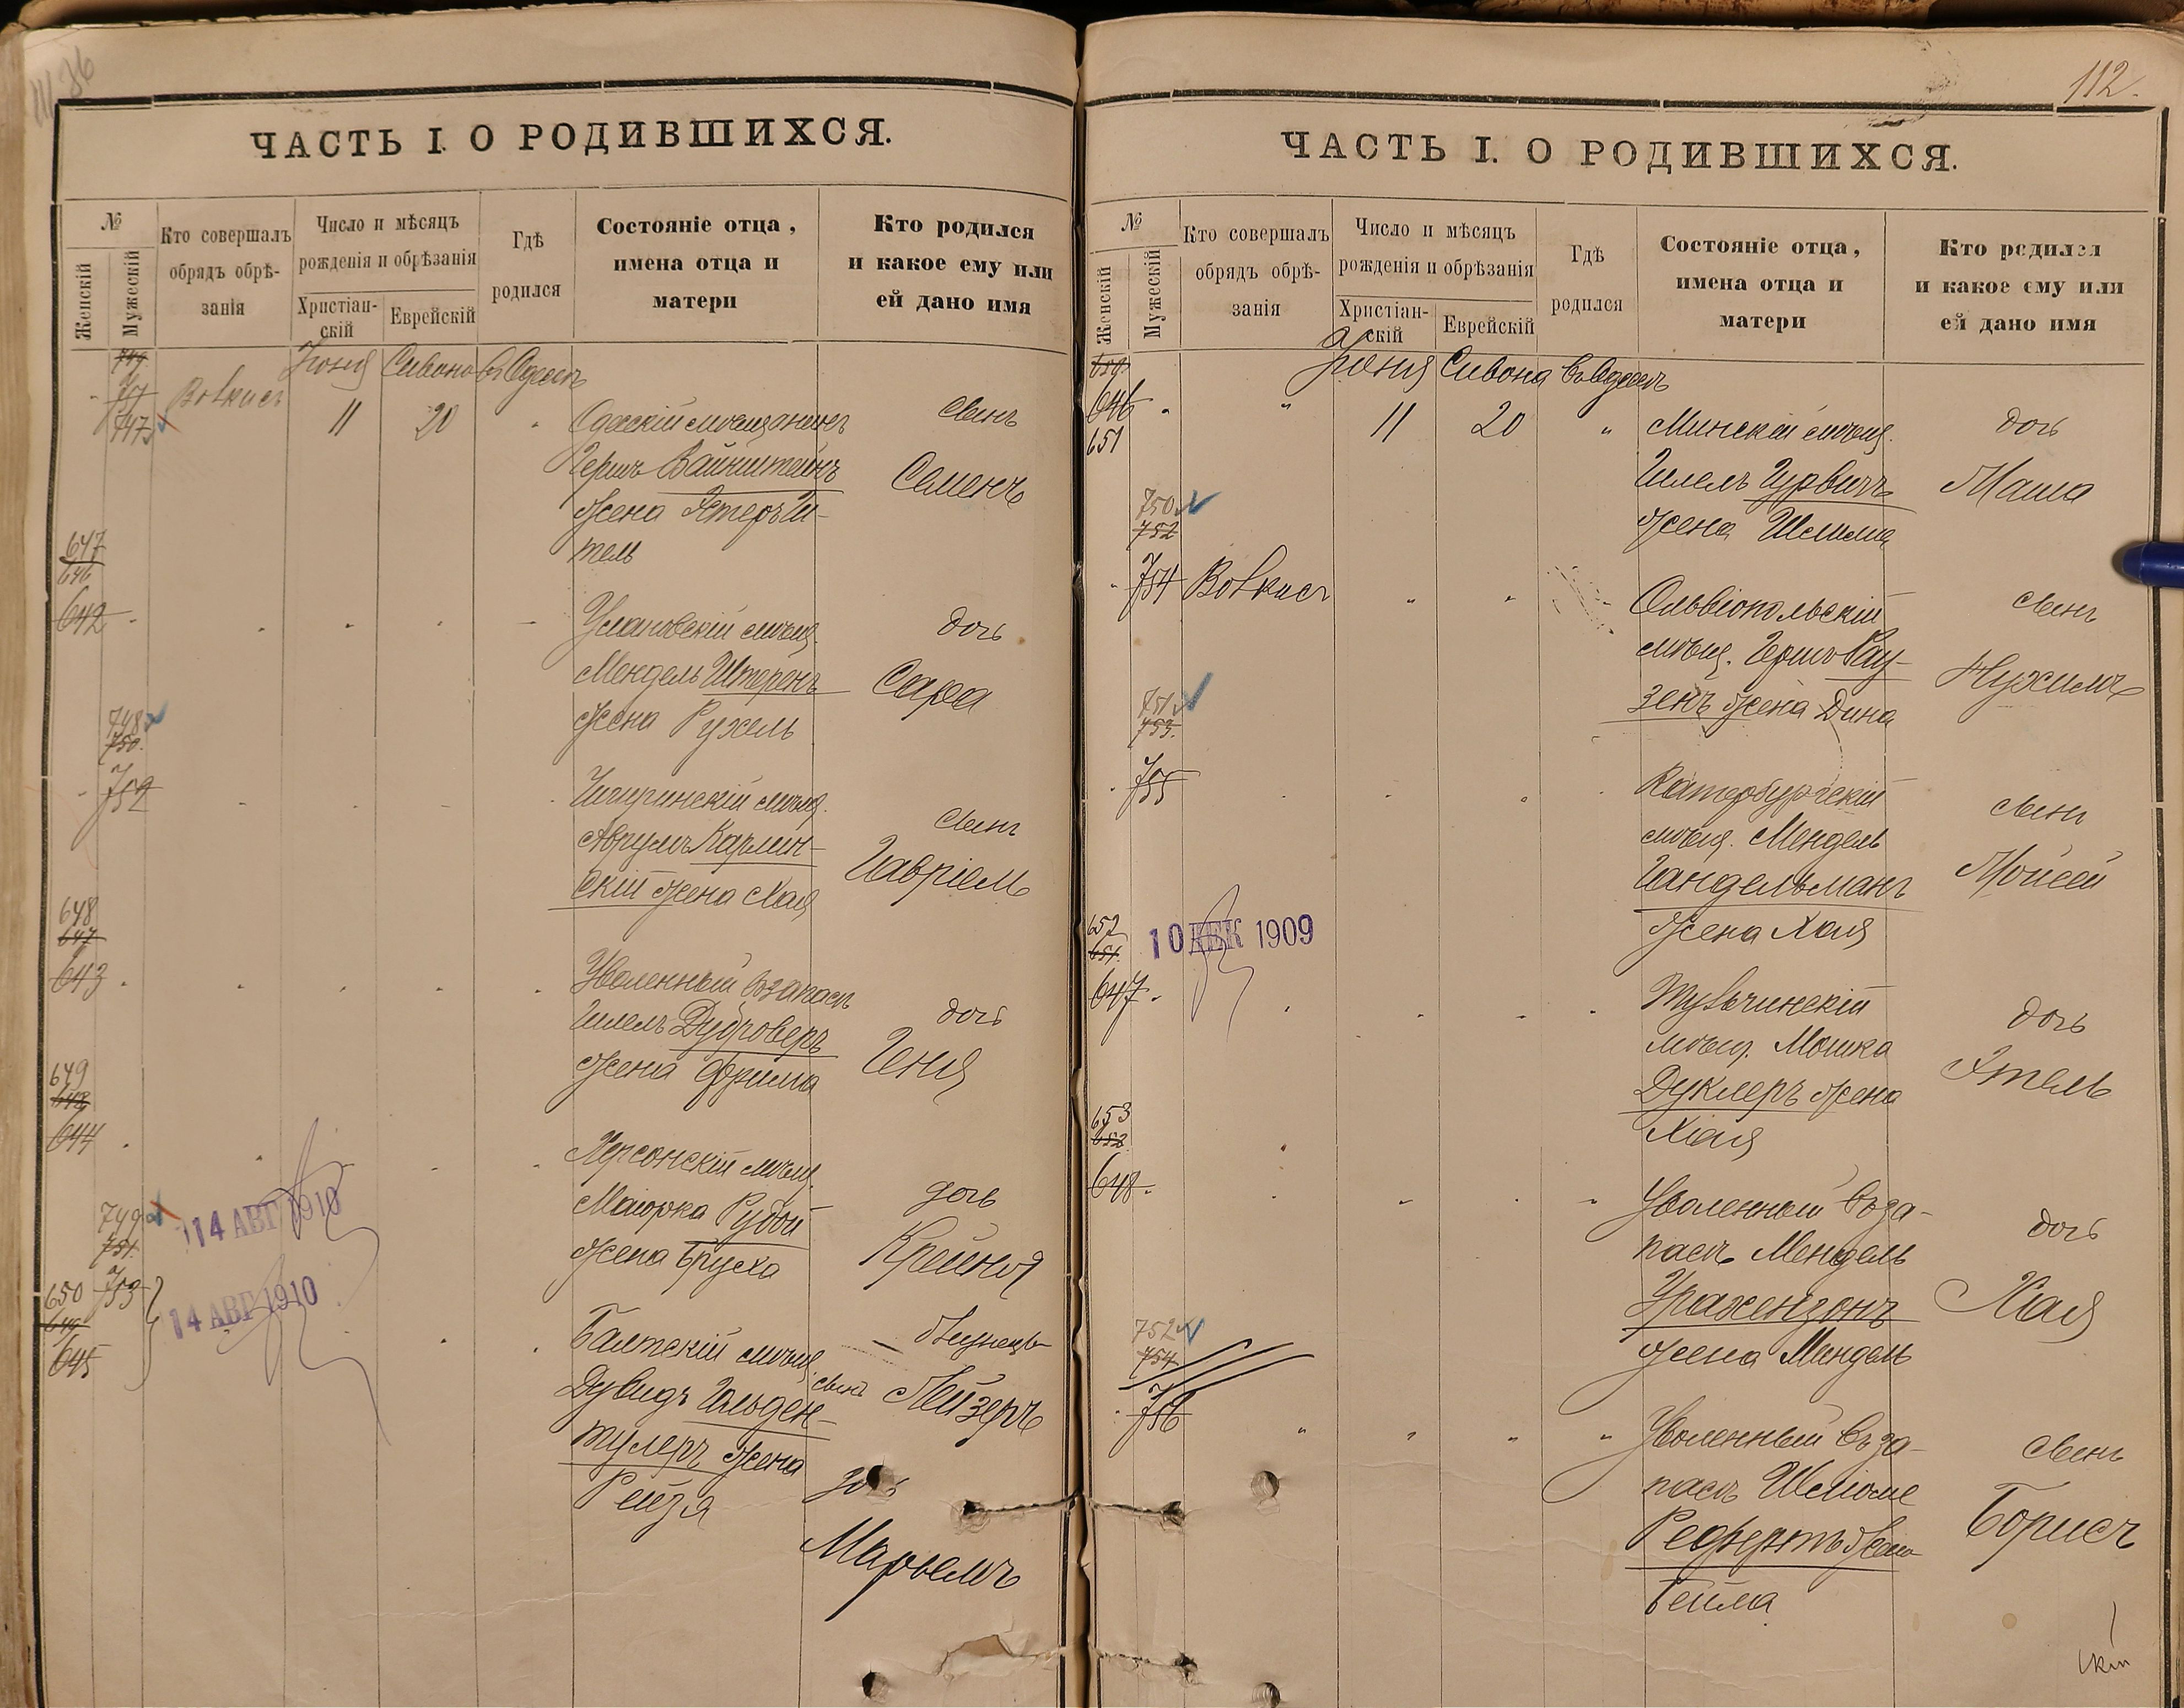 ЧАСТЬ I. О РОДИВШИХСЯ.
№
Женскій
Мужескій
Кто совершалъ
обрядъ обрѣ-
занія
Число и мѣсяцъ
рожденія и обрѣзанія
Христіан-
скій
Еврейскій
Гдѣ
родился
Состояніе отца,
имена отца и
матери
Кто родился
и какое ему или
ей дано имя
Іюня Сивона въ Одессѣ
747
11 20
Одесскій мѣщанинъ
Гершъ Вайнштейнъ
жена Эстеръ И-
тель
сынъ
Семенъ
647
646
642
Умановскій мѣщ.
Мендель Штеренъ
жена Рухель
дочь
Сара
748
750.
752
Чигиринскій мѣщ.
Аврумъ Карлин-
скій жена Хая
сынъ
Гавріелъ
648
647
643
Уволенный въ запасъ
Шлемъ Дуброверъ
жена Фрима
дочь
Геня
649
648
644
Херсонскій мѣщ.
Маіорка Рубой
жена Бруха
дочь
Крейня
14 АВГ 1910
749
751.
753
14 АВГ 1910
650
649
645
Балтскій мѣщ.
Дувидъ Гольден-
тулеръ жена
Рейзя
близнецы
сынъ Лейзеръ
дочь
Марьемъ
112.
ЧАСТЬ I. О РОДИВШИХСЯ.
№
Женскій
Мужескій
Кто совершалъ
обрядъ обрѣ-
занія
Число и мѣсяцъ
рожденія и обрѣзанія
Христіан-
скій
Еврейскій
Гдѣ
родился
Состояніе отца,
имена отца и
матери
Кто родился
и какое ему или
ей дано имя
Іюня Сивона въ Одессѣ
646
651
" 11 20 "
Минскій мѣщ.
Гилель Гурвичъ
жена
дочь
Маша
750
752
754
Ольвіопольскій
мѣщ. Гершъ Рау-
зенъ жена Дина
сынъ
Нухимъ
751
753.
755
Катербургскій
мѣщ. Мендель
Гандельманъ
жена Хая
сынъ
Мойсей
652
651.
10 ДЕК 1909
647.
Тульчинскій
мѣщ. Мошка
Дуклеръ жена
Хая
дочь
Этель
653
652
648.
Уволенный въ за-
пасъ Мендель
жена Миндель
дочь
Хая
752
754
756
" " " "
Уволенный въ за-
пасъ Шеліоме
жена
Бейла
сынъ
Борисъ